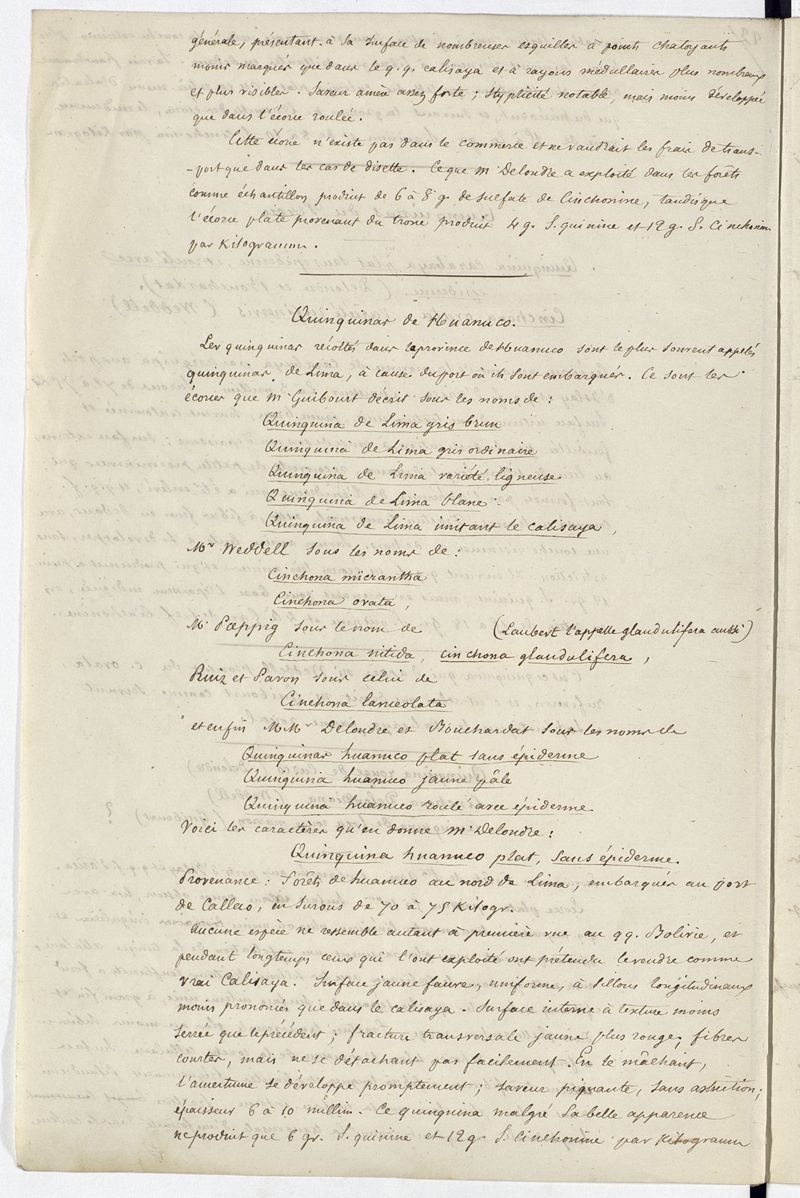 générale, présentant à sa surface de nombreuses esquilles à points chatoyants
moins marqués que dans le q. q. calisaya et à rayons médullaires plus nombreux
et plus visibles. Saveur amère assez forte ; stypticité notable, mais moins développée
que dans l'écorce roulée.
Cette écorce n'existe pas dans le commerce et ne vaudrait les frais de trans-
-port que dans les cas de disette. Ce que Mr Delondre a exploité dans les forêts
comme échantillon produit de 6 à 8 g. de sulfate de Cinchonine, tandisque
l'écorce plate provenant du tronc produit 4 g. S. quinine et 12 g. S. Cinchonine
par Kilogramme.
Quinquinas de Huanuco.
Les quinquinas récoltés dans la province de Huanuco sont le plus souvent appelés
quinquinas de Lima, à cause du port où ils sont embarqués. Ce sont les
écorces que Mr Guibourt décrit sous les noms de :
Quinquina de Lima gris brun
Quinquina de Lima gris ordinaire
Quinquina de Lima variété ligneuse
Quinquina de Lima blanc
Quinquina de Lima imitant le calisaya,
Mr Weddell sous les noms de :
Cinchona micrantha
Cinchona ovata,
Mr Pœppig sous le nom de (Laubert l'appelle glandulifera aussi)
Cinchona nitida, cinchona glandulifera,
Ruiz et Pavon sous celui de
Cinchona lanceolata
et enfin M.Mrs Delondre et Bouchardat sous les noms de
Quinquinas huanuco plat sans épiderme
Quinquina huanuco jaune pâle
Quinquina huanuco roulé avec épiderme
Voici les caractères qu'en donne Mr Delondre :
Quinquina huanuco plat, sans épiderme.
Provenance : Forêts de huanuco au nord de Lima, embarqués au port
de Callao, en surons de 70 à 75 Kilogr.
Aucune espèce ne ressemble autant à première vue au qq. Bolivie, et
pendant longtemps ceux qui l'ont exploité ont prétendu le vendre comme
vrai Calisaya. Surface jaune fauve, uniforme, à sillons longitudinaux
moins prononcés que dans le calisaya. Surface interne à texture moins
serrée que le précédent ; fracture transversale jaune plus rouge, fibres
courtes, mais ne se détachant pas facilement. En le mâchant,
l'amertume se développe promptement ; saveur piquante, sans astriction ;
épaisseur 6 à 10 millim. Ce quinquina malgré sa belle apparence
ne produit que 6 gr. S. quinine et 12 g. S. Cinchonine par Kilogramme